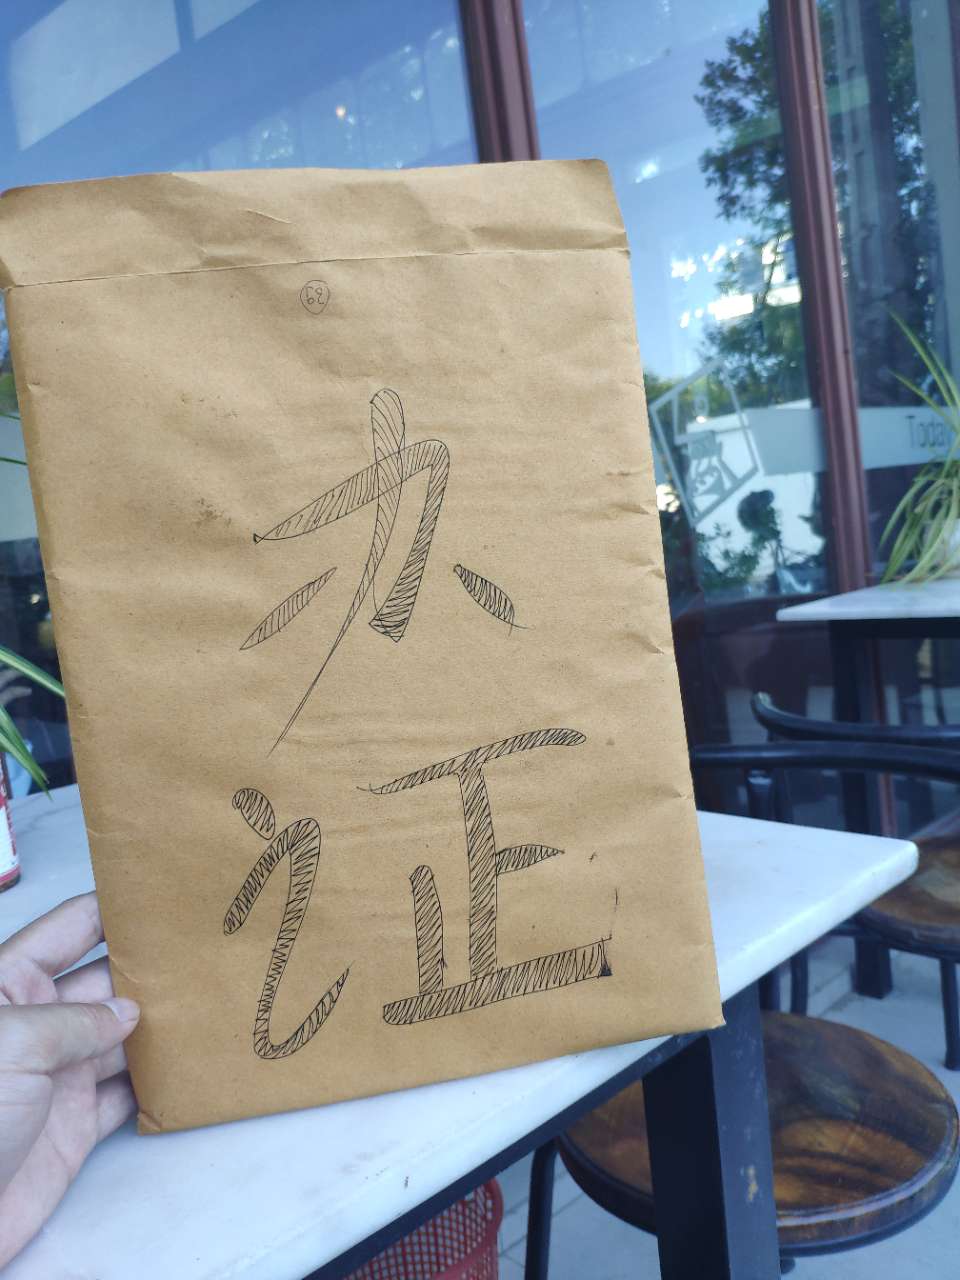 办
证
Today